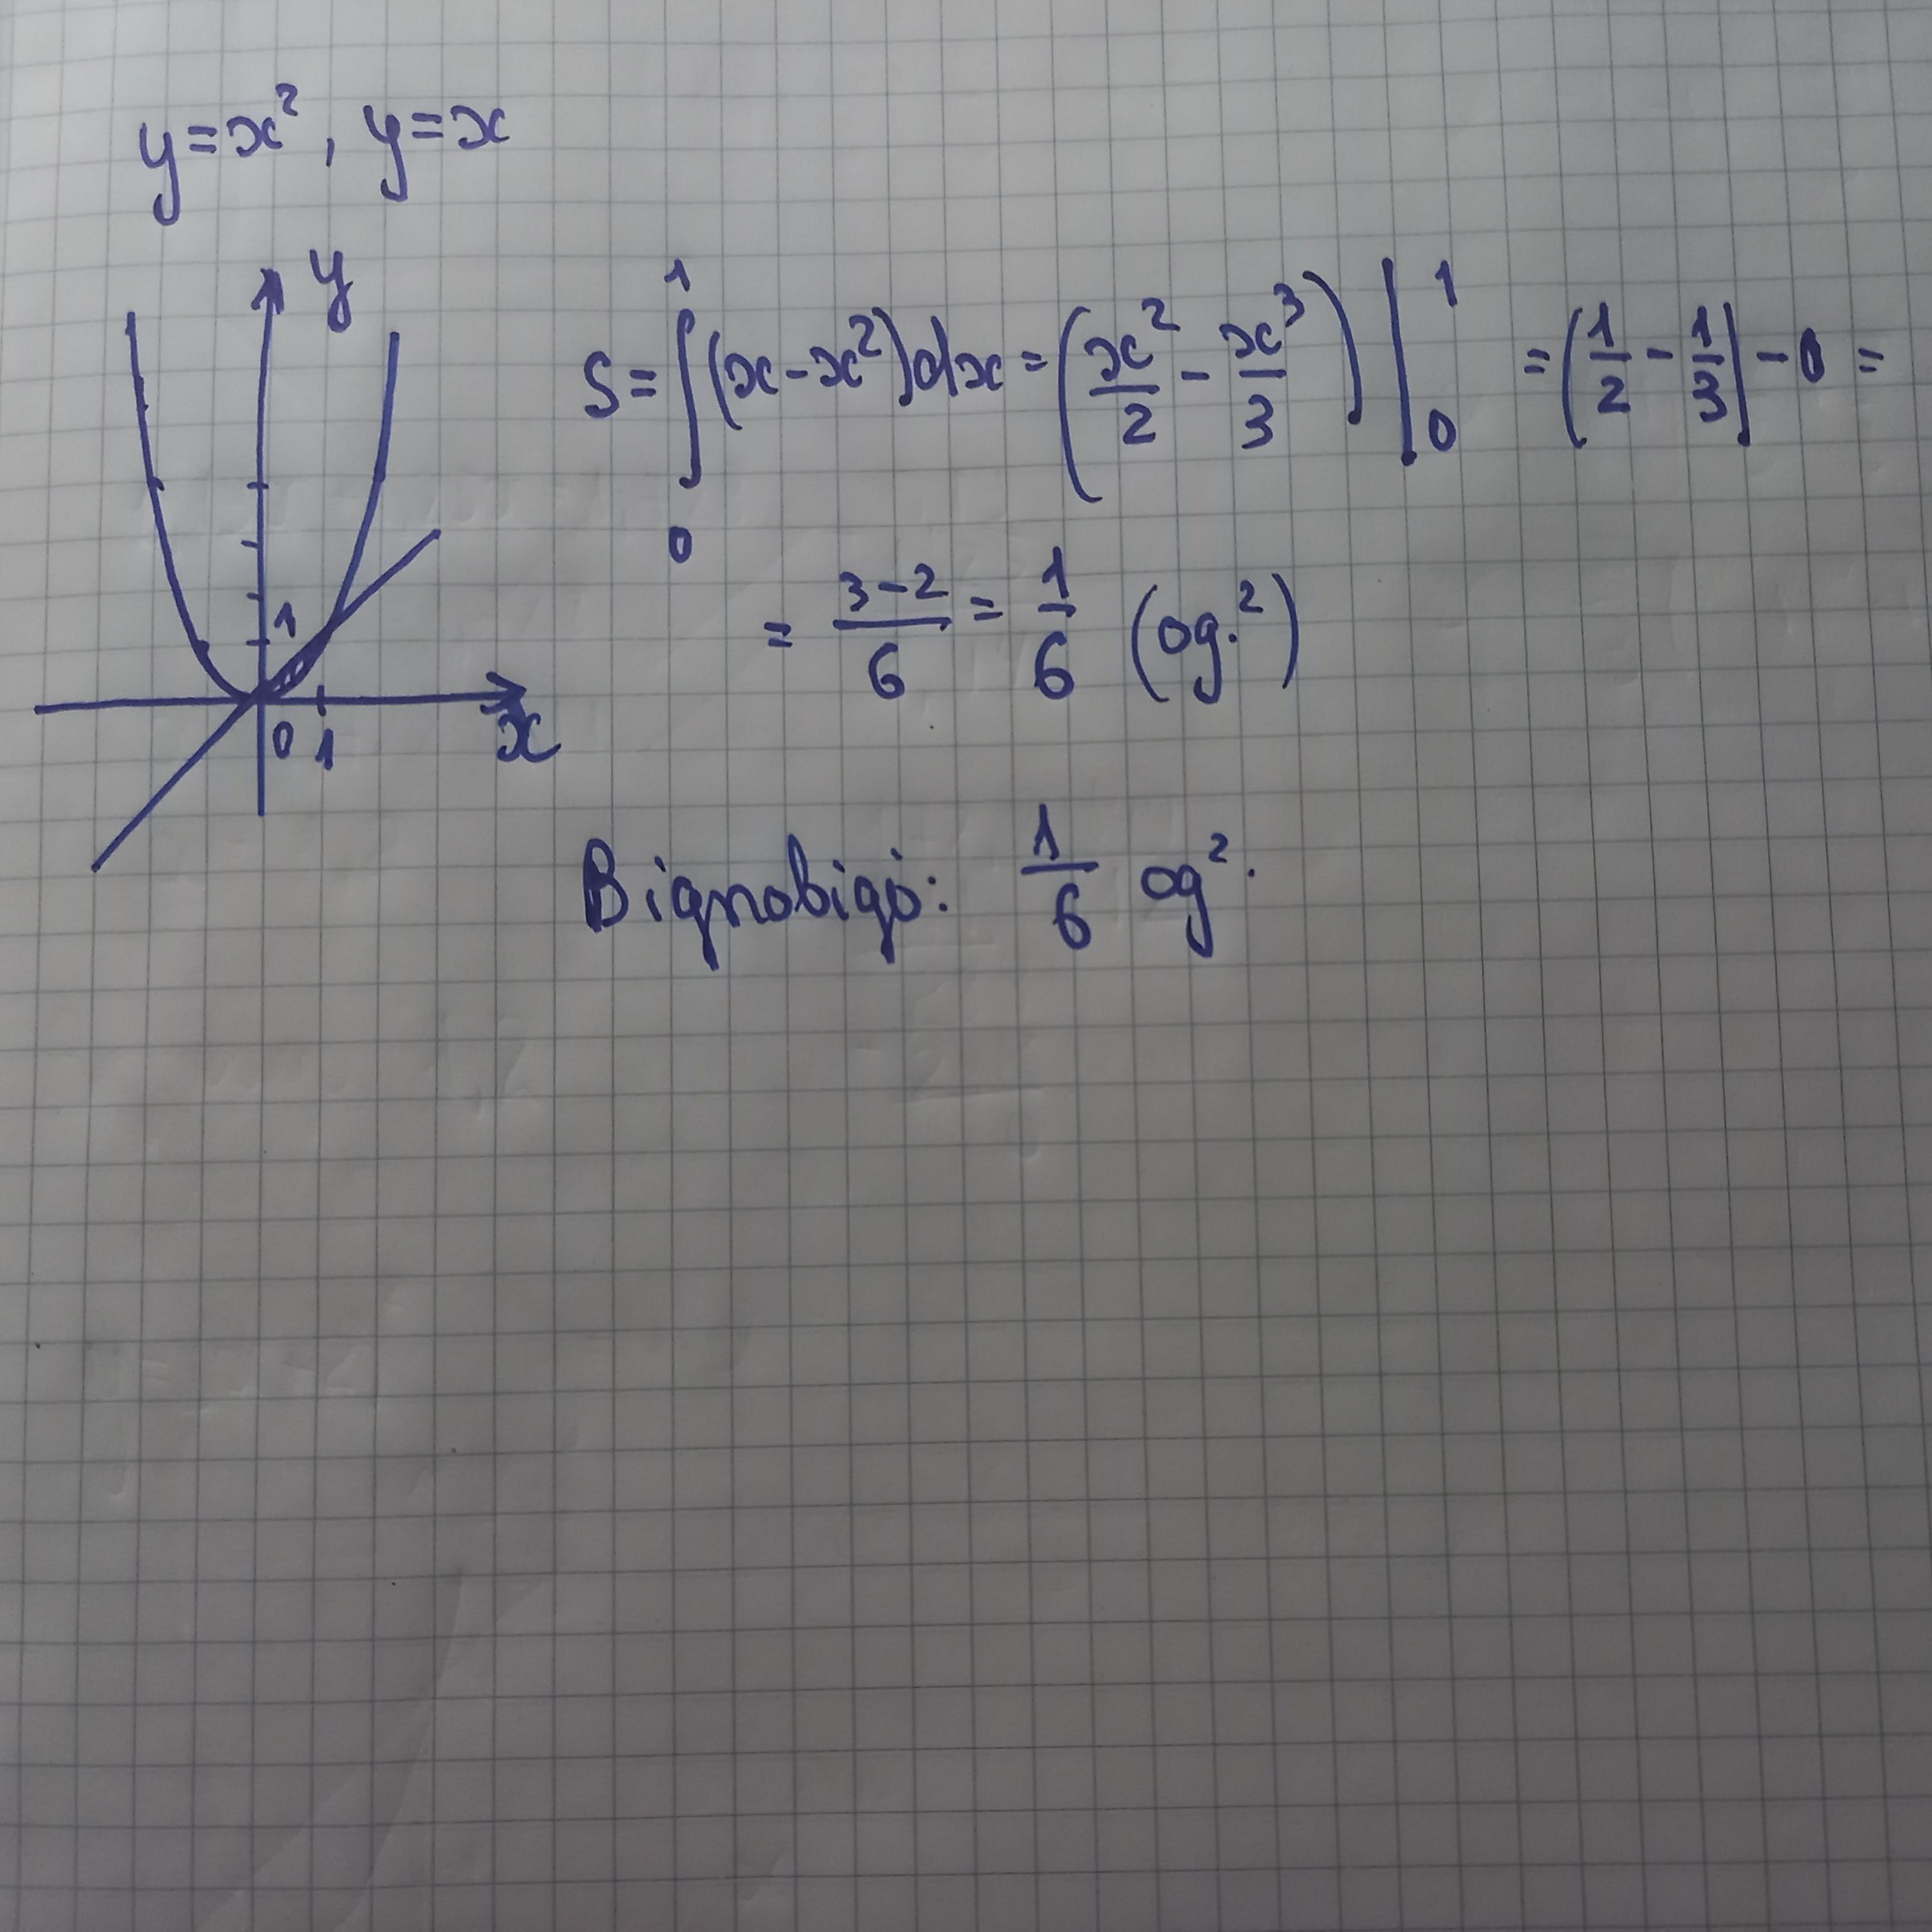 y=x², y=x
y
1
0 1
x
S=∫₀¹(x-x²)dx=(x²/2-x³/3)|₀¹=(1/2-1/3)-0=
=(3-2)/6=1/6 (од.²)
Відповідь: 1/6 од².